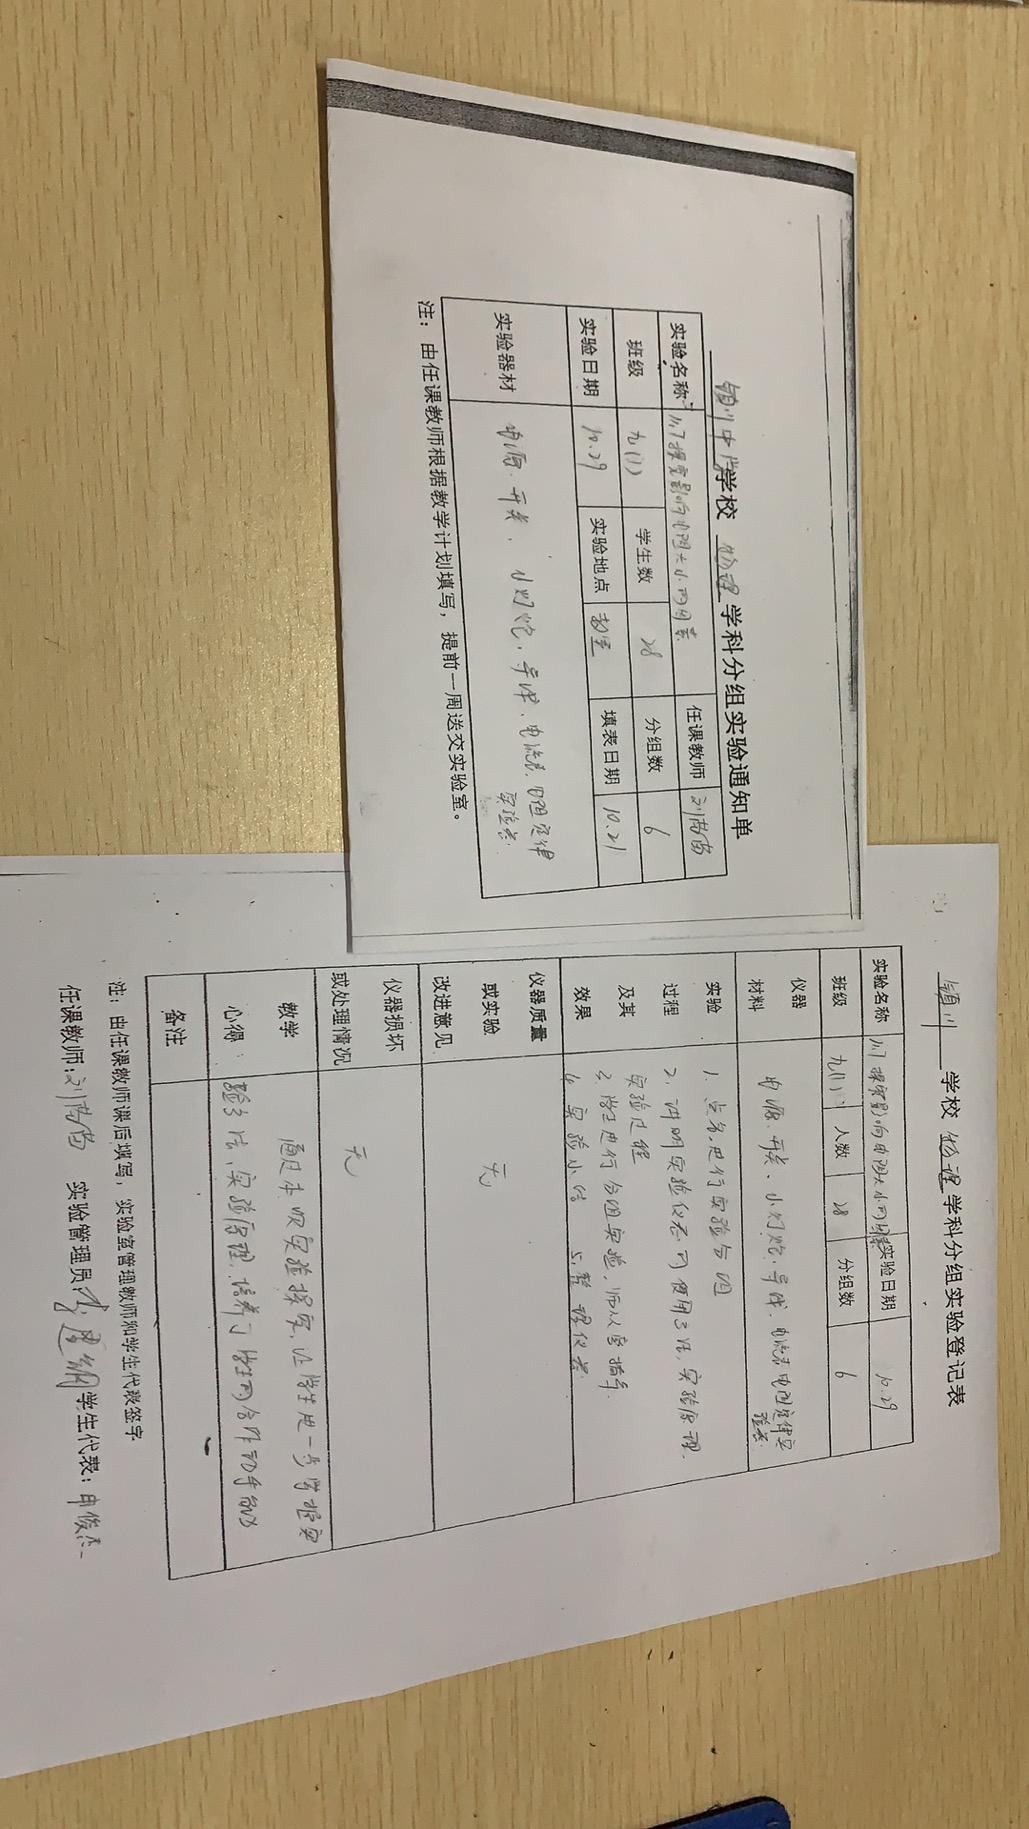 镇川中学学校 物理 学科分组实验通知单
实验名称 11.7探究影响电阻大小的因素 任课教师
班级 九(1) 学生数 28 分组数 6
实验日期 10.29 实验地点 教室 填表日期 10.21
实验器材 电源、开关、小灯炮、导线、电流表、电阻定律
实验器
注：由任课教师根据教学计划填写，提前一周送交实验室。
镇川 学校 物理 学科分组实验登记表
实验名称 11.7探究影响电阻大小的因素 实验日期 10.29
班级 九(1) 人数 28 分组数 6
仪器
材料
电源、开关、小灯炮、导线、电流表、电阻定律实
验器
实验
过程
及其
效果
1. 点名,进行实验分组
2. 讲明实验仪器的使用方法,实验原理.
实验过程
3. 学生进行分组实验,师从旁指导
4. 实验小结 5. 整理仪器
仪器质量
或实验
改进意见
无
仪器损坏
或处理情况
无
教学
心得：
通过本次实验探究,让学生进一步掌握实
验方法,实验原理,培养了学生的合作动手能力
备注
注：由任课教师课后填写，实验室管理教师和学生代表签字
任课教师： 实验管理员： 学生代表：申俊杰